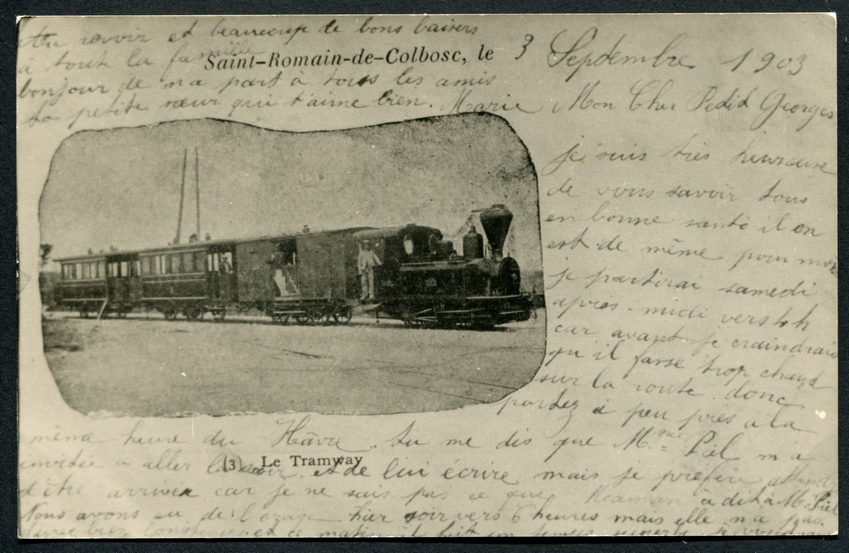 Au revoir et beaucoup de bons baisers
à toute la famille
Saint-Romain-de-Colbosc, le 3 Septembre 1903
bonjour de ma part à tous les amis
ta petite sœur qui t'aime bien. Marie
Mon Cher Petit Georges
je suis très heureuse
de vous savoir tous
en bonne santé il en
est de même pour moi
je partirai samedi
après-midi vers 4h
car avant je craindrais
qu'il fasse trop chaud
sur la route donc
partez à peu près à la
même heure du Hâvre. tu me dis que Mme Piel m'a
(3) Le Tramway
invitée à aller la voir et de lui écrire mais je préfère
d'être arrivée car je ne sais pas ce que maman a dit à M. Piel
Nous avons eu de l'orage hier soir vers 6 heures mais elle n'a pas